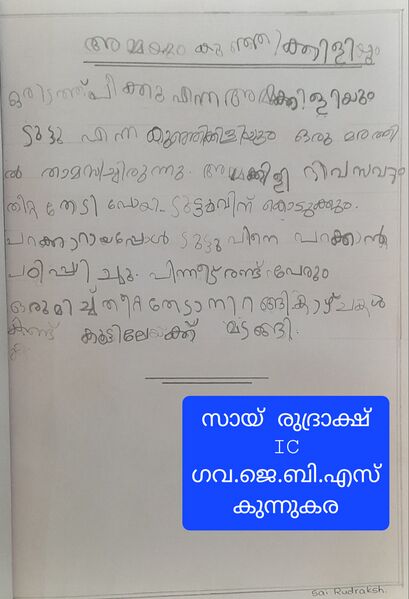 അമ്മയും കുഞ്ഞിക്കിളിയും
ഒരിടത്ത് പിക്കു എന്ന അമ്മക്കിളിയും
ടുട്ടു എന്ന കുഞ്ഞിക്കിളിയും ഒരു മരത്തി
ൽ താമസിച്ചിരുന്നു. അമ്മക്കിളി ദിവസവും
തീറ്റ തേടി പോയി ടുട്ടുവിന് കൊടുക്കും.
പറക്കാറായപ്പോൾ ടുട്ടുവിനെ പറക്കാൻ
പഠിപ്പിച്ചു. പിന്നീട് രണ്ട് പേരും
ഒരുമിച്ച് തീറ്റ തേടാനിറങ്ങി കാഴ്ചകൾ
കണ്ട് കൂട്ടിലേയ്ക്ക് മടങ്ങി.
സായ് രുദ്രാക്ഷ്
IC
ഗവ.ജെ.ബി.എസ്
കുന്നുകര
Sai Rudraksh.